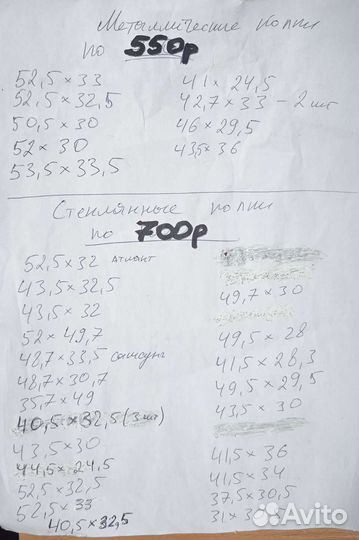 Металлические полки
по 550р
52,5 × 33
52,5 × 32,5
50,5 × 30
52 × 30
53,5 × 33,5
41 × 24,5
42,7 × 33 – 2 шт
46 × 29,5
43,5 × 36
Стеклянные полки
по 700р
52,5 × 32 Атлант
43,5 × 32,5
43,5 × 32
52 × 49,7
48,7 × 33,5
48,7 × 30,7
35,7 × 49
40,5 × 32,5 (3 шт)
43,5 × 30
44,5 × 24,5
52,5 × 32,5
52,5 × 33
40,5 × 32,5
49,7 × 30
49,5 × 28
41,5 × 28,3
49,5 × 29,5
43,5 × 30
41,5 × 36
41,5 × 34
37,5 × 30,5
Avito